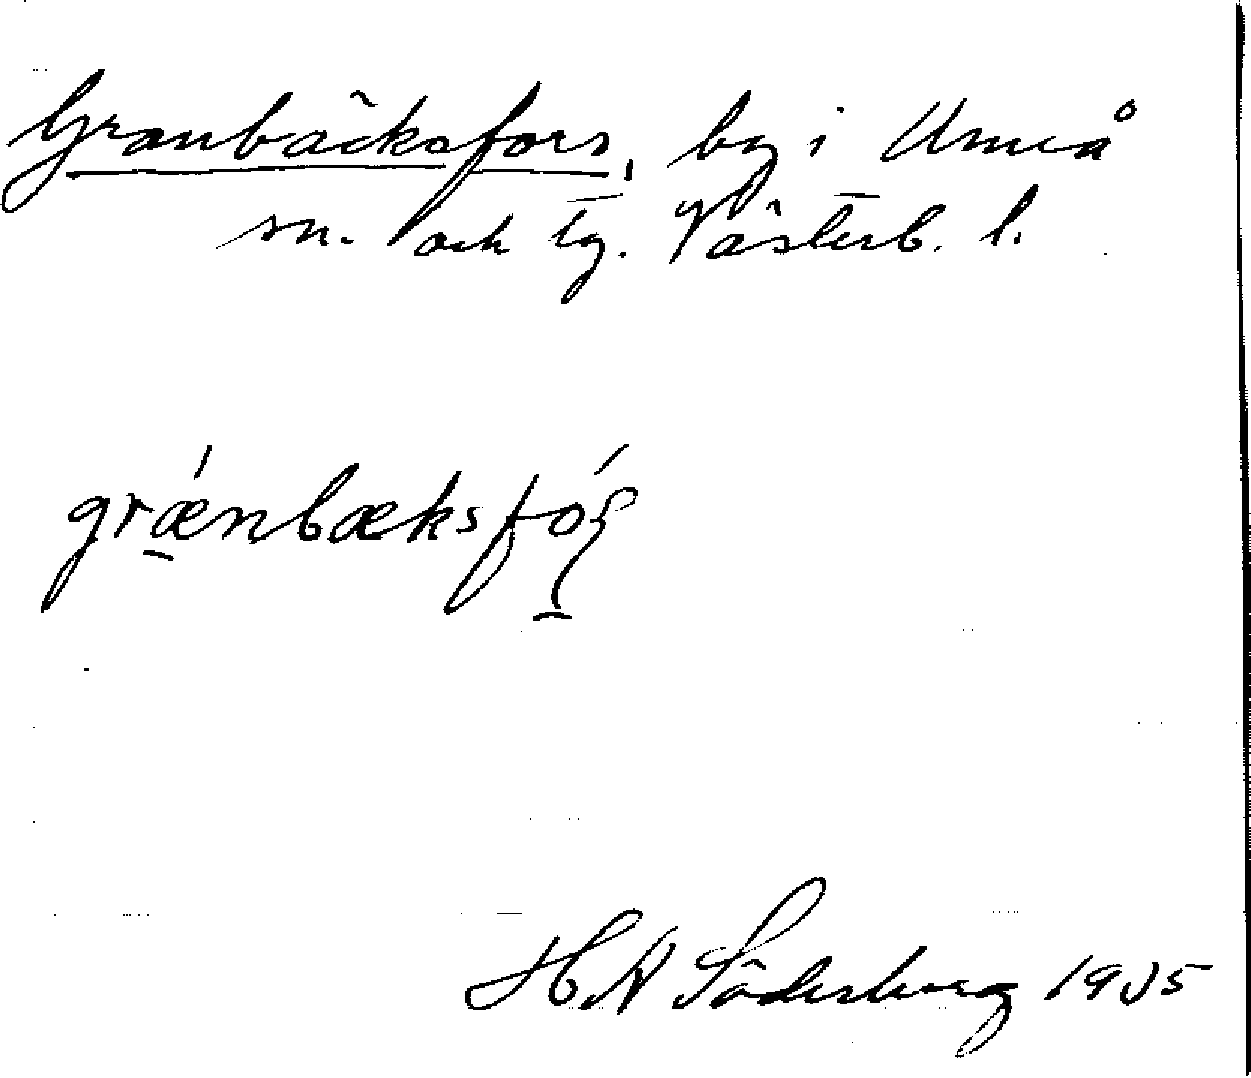 Granbäcksfors, by i Umeå
sn. och tg. Västerb. l.
grǽnbæksfóʂ
H N Söderberg 1905